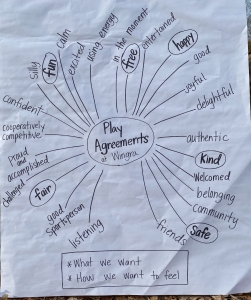 Play
Agreements
at Wingra
silly
fun
calm
excited
using energy
in the moment
free
entertained
happy
good
joyful
delightful
authentic
kind
welcomed
belonging
community
safe
friends
listening
good
sportsperson
fair
challenged
proud
and
accomplished
cooperatively
competitive
confident
* What we want
* How we want to feel